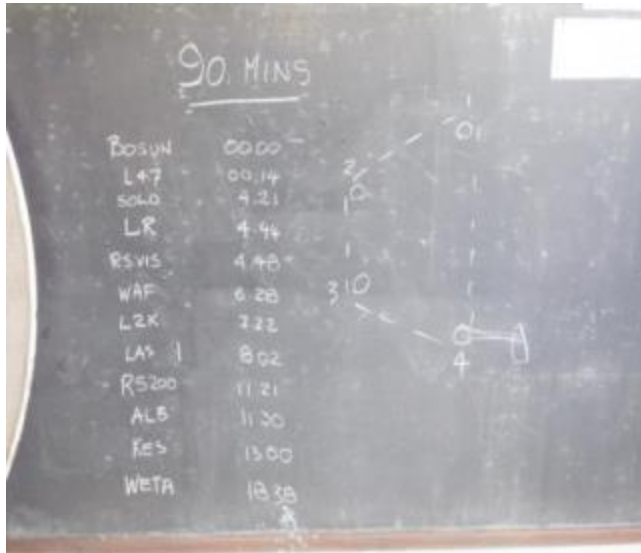 90 MINS
BOSUN 00.00
L47 00.14
SOLO 4.21
LR 4.44
RSVIS 4.48
WAF 6.28
L2K 7.22
LAS 1 8.02
RS200 11.21
ALB 11.30
KES 13.00
WETA 18.38
1
2
3
4